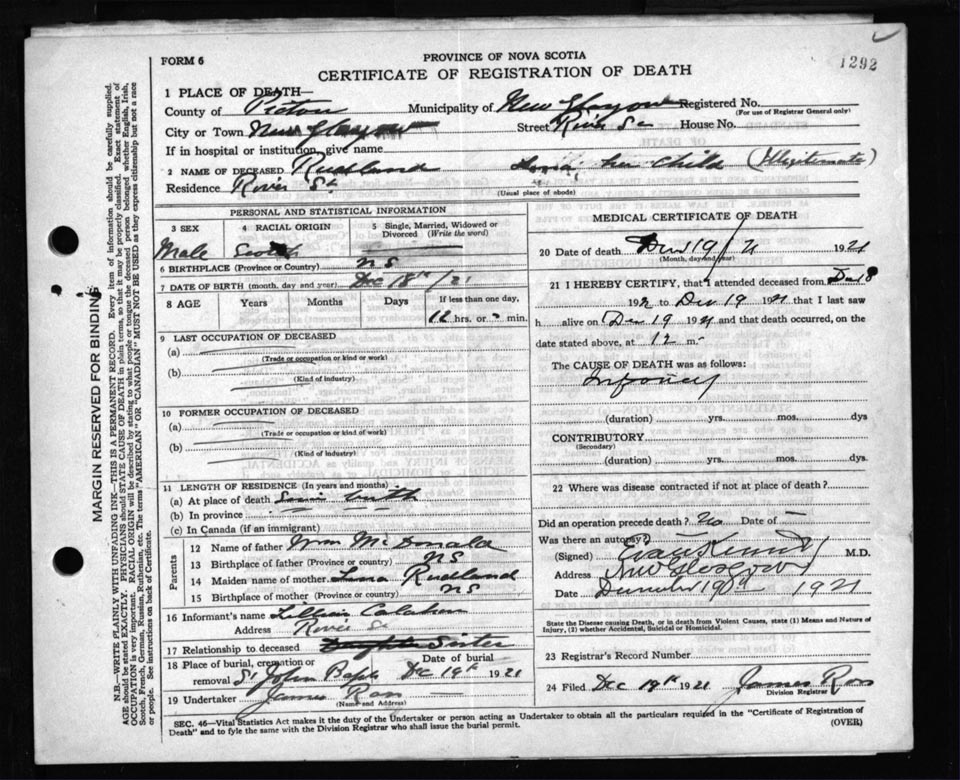 1292
FORM 6
PROVINCE OF NOVA SCOTIA
CERTIFICATE OF REGISTRATION OF DEATH
MARGIN RESERVED FOR BINDING
N.B.—WRITE PLAINLY WITH UNFADING INK—THIS IS A PERMANENT RECORD. Every item of information should be carefully supplied.
AGE should be stated EXACTLY. PHYSICIANS should STATE CAUSE OF DEATH in plain terms, so that it may be properly classified. Exact statement of
OCCUPATION is very important. RACIAL ORIGIN will be described by stating to what people or tongue the deceased person belonged whether English, Irish,
Scotch, French, German, Russian, Ruthenian, etc. The terms "AMERICAN" OR "CANADIAN" MUST NOT BE USED as they express citizenship but not a race
or people. See instructions on back of Certificate.
1 PLACE OF DEATH—
County of Pictou Municipality of New Glasgow Registered No.
(For use of Registrar General only)
City or Town New Glasgow Street River St House No.
If in hospital or institution, give name
2 NAME OF DECEASED Rudland Child (Illegitimate)
Residence River St
(Usual place of abode)
PERSONAL AND STATISTICAL INFORMATION
3 SEX 4 RACIAL ORIGIN 5 Single, Married, Widowed or
Divorced (Write the word)
Male Scotch
6 BIRTHPLACE (Province or Country) NS
7 DATE OF BIRTH (month, day and year) Dec 18th /21
8 AGE Years Months Days If less than one day,
12 hrs. or min.
9 LAST OCCUPATION OF DECEASED
(a)
(Trade or occupation or kind or work)
(b)
(Kind of industry)
10 FORMER OCCUPATION OF DECEASED
(a)
(Trade or occupation or kind of work)
(b)
(Kind of industry)
11 LENGTH OF RESIDENCE (In years and months)
(a) At place of death Since birth
(b) In province
(c) In Canada (if an immigrant)
Parents
12 Name of father Wm McDonald
13 Birthplace of father (Province or country) NS
14 Maiden name of mother Lena Rudland
15 Birthplace of mother (Province or country) NS
16 Informant's name Lillian
Address River St
17 Relationship to deceased Daughter Sister
18 Place of burial, cremation or
removal St John Date of burial
Dec 19th 1921
19 Undertaker James Ross
(Name and Address)
MEDICAL CERTIFICATE OF DEATH
20 Date of death Dec 19/21 1921
(Month, day and year)
21 I HEREBY CERTIFY, that I attended deceased from Dec 18
192 to Dec 19 1921 that I last saw
h alive on Dec 19 1921 and that death occurred, on
date stated above, at 12 m.
The CAUSE OF DEATH was as follows:
Infancy
(duration) yrs. mos. dys
CONTRIBUTORY
(Secondary)
(duration) yrs. mos. dys.
22 Where was disease contracted if not at place of death?
Did an operation precede death? No Date of —
Was there an autopsy?
(Signed) Evan Kennedy M.D.
Address New Glasgow
Date December 19th 1921
State the Disease causing Death, or in death from Violent Causes, state (1) Means and Nature of
Injury, (2) whether Accidental, Suicidal or Homicidal.
23 Registrar's Record Number
24 Filed Dec 19th 1921 James Ross
Division Registrar
SEC. 46—Vital Statistics Act makes it the duty of the Undertaker or person acting as Undertaker to obtain all the particulars required in the "Certificate of Registration of
Death" and to fyle the same with the Division Registrar who shall issue the burial permit. (OVER)